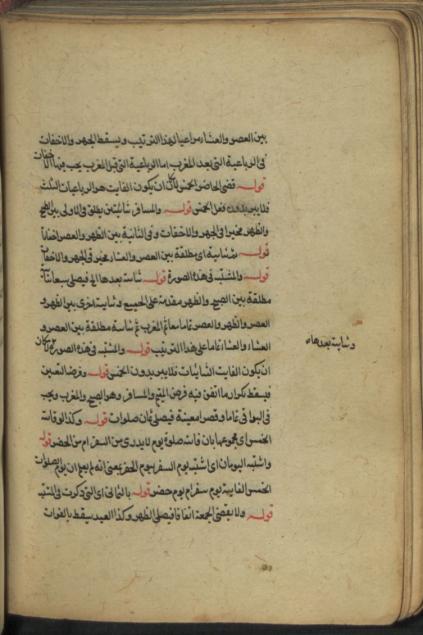 بين العصر والعشاء مراعيا لهذا الترتيب ويسقط الجهر والاخفات
في الرباعية التي بعد المغرب اما الرباعية التي قبل المغرب يجب فيها الاخفات
قوله قضى الحاضر الخمس لامكان ان يكون الفايت هو الرباعيات الثلث
فلا يبرء بدون فعل الخمس قوله والمسافر ثنائيتين يطلق في الاولى بين الصبح
والظهر مخيرا في الجهر والاخفات وفي الثانية بين الظهر والعصر ايضا
قوله ثنائية اى مطلقة بين العصر والعشاء مخير في الجهر والاخفات
قوله والمشتبه في هذه الصورة قوله ثنائية بعدها اى فيصلي
مطلقة بين الصبح والظهر مقدمة على الجميع وثنايية اخرى بين الظهر و
العصر والظهر والعصر تماما معا ثم المغرب ثم ثنائية مطلقة بين العصر و
العشاء والعشاء تماما على هذا الترتيب قوله والمشتبه في هذه الصورة لامكان
ان يكون الفايت الثنائيات فلا يبرء بدون الخمس قوله وفرضا التعيين
فيسقط تكرار ما اتفق فيه فرض المقيم والمسافر وهو الصبح والمغرب ويجب
في البواقي تماما وقصرا معينة فيصلي ثمان صلوات قوله وكذا لو فاتته
الخمس اى مجموعها بان فاتته صلوة يوم لا يدرى من السفر ام من الحضر قوله
واشتبه اليومان اى اشتبه يوم السفر بيوم الحضر بمعنى انه لم يعلم ان يوم الصلوات
الخمس الفايتة يوم سفر ام يوم حضر قوله بالثمانى اى التي ذكرت في المشتبه
قوله ولا يقضى الجمعة اتفاقا فيصلي الظهر وكذا العيد يسقط بالفوات
وثنايية بعدها